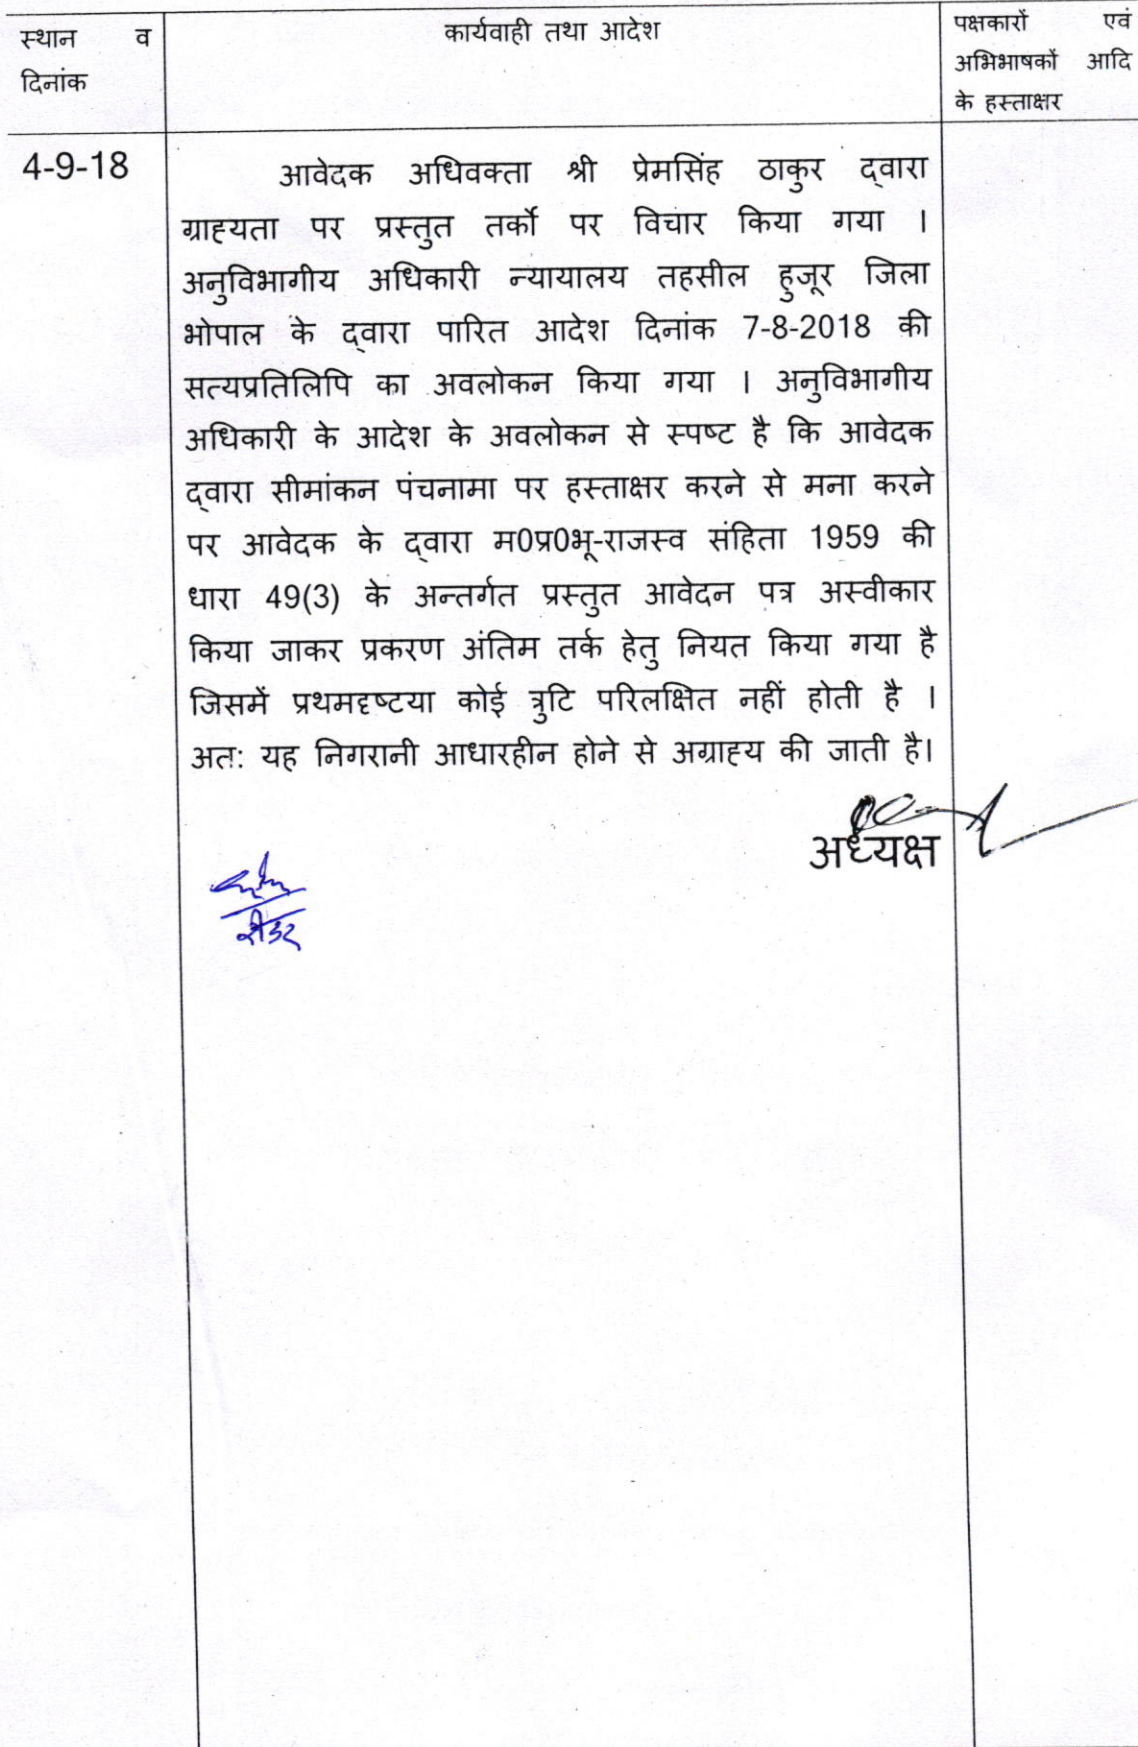 स्थान व
दिनांक
कार्यवाही तथा आदेश
पक्षकारों एवं
अभिभाषकों आदि
के हस्ताक्षर
4-9-18
आवेदक अधिवक्ता श्री प्रेमसिंह ठाकुर द्वारा
ग्राह्यता पर प्रस्तुत तर्को पर विचार किया गया ।
अनुविभागीय अधिकारी न्यायालय तहसील हुजूर जिला
भोपाल के द्वारा पारित आदेश दिनांक 7-8-2018 की
सत्यप्रतिलिपि का अवलोकन किया गया । अनुविभागीय
अधिकारी के आदेश के अवलोकन से स्पष्ट है कि आवेदक
द्वारा सीमांकन पंचनामा पर हस्ताक्षर करने से मना करने
पर आवेदक के द्वारा म0प्र0भू-राजस्व संहिता 1959 की
धारा 49(3) के अन्तर्गत प्रस्तुत आवेदन पत्र अस्वीकार
किया जाकर प्रकरण अंतिम तर्क हेतु नियत किया गया है
जिसमें प्रथमदृष्टया कोई त्रुटि परिलक्षित नहीं होती है ।
अतः यह निगरानी आधारहीन होने से अग्राह्य की जाती है।
अध्यक्ष
रीडर